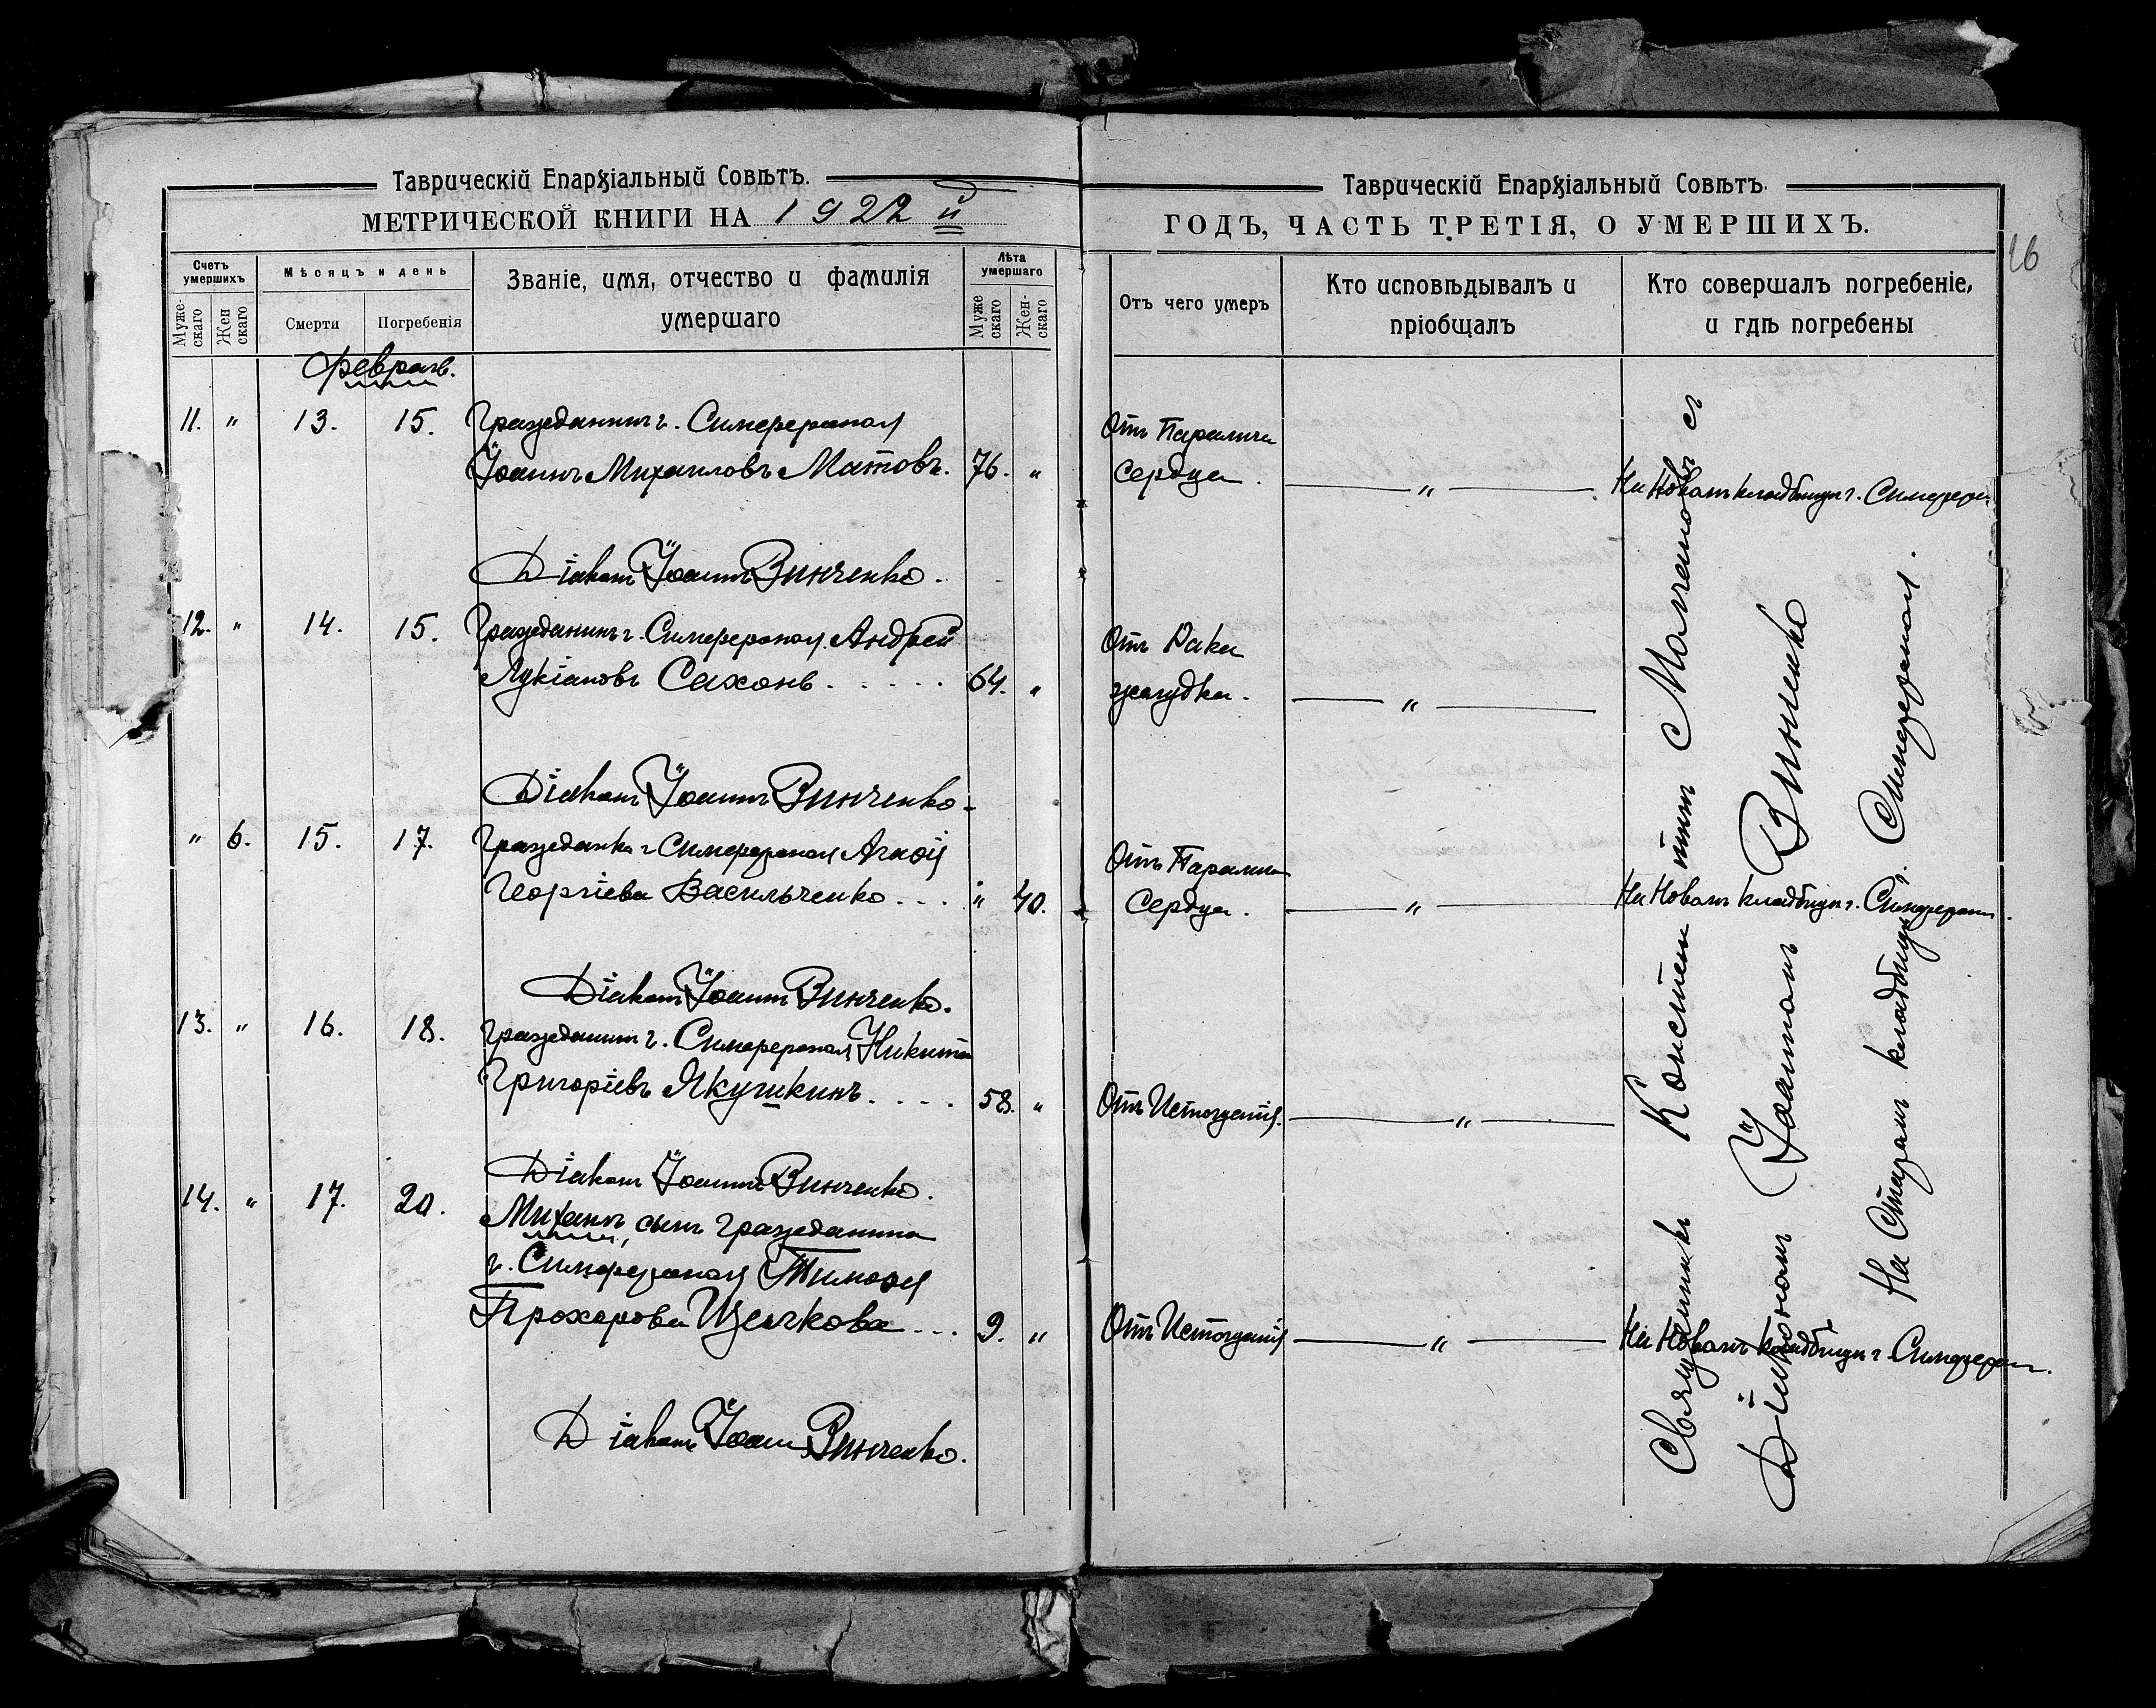 Таврическій Епархіальный Совѣтъ.
МЕТРИЧЕСКОЙ КНИГИ НА 1922 й
Счетъ умершихъ
Мѣсяцъ и день
Званіе, имя, отчество и фамилія умершаго
Лѣта умершаго
Мужескаго
Женскаго
Смерти
Погребенія
Мужескаго
Женскаго
Февраль.
11. " 13. 15. Гражданинъ г. Симферополя
Іоаннъ Михаиловъ Матовъ. 76. "
Діаконъ Іоаннъ Винченко.
12. " 14. 15. Гражданинъ г. Симферополя Андрей
Лукіановъ Сахонь. . . . . 64. "
Діаконъ Іоаннъ Винченко.
" 6. 15. 17. Гражданка г. Симферополя
Георгіева Васильченко . . . " 40.
Діаконъ Іоаннъ Винченко.
13. " 16. 18. Гражданинъ г. Симферополя Никита
Григоріевъ Якушкинъ. . . . 58. "
Діаконъ Іоаннъ Винченко.
14. " 17. 20. Михаилъ, сынъ гражданина
г. Симферополя
Прохорова Щелчкова . . . 9. "
Діаконъ Іоаннъ Винченко.
Таврическій Епархіальный Совѣтъ.
ГОДЪ, ЧАСТЬ ТРЕТІЯ, О УМЕРШИХЪ.
16
Отъ чего умеръ
Кто исповѣдывалъ и пріобщалъ
Кто совершалъ погребеніе, и гдѣ погребены
Отъ Паралича
Сердца. " На Новомъ кладбищѣ г. Симфероп
Отъ Рака
желудка. "
Отъ Паралича
Сердца. " На Новомъ кладбищѣ г. Симфероп.
Отъ Истощенія. "
Отъ Истощенія " На Новомъ кладбищѣ г. Симфероп.
Священникъ Константинъ съ
Діакономъ Іоанномъ Винченко
На Старомъ кладбищѣ г. Симферополя.